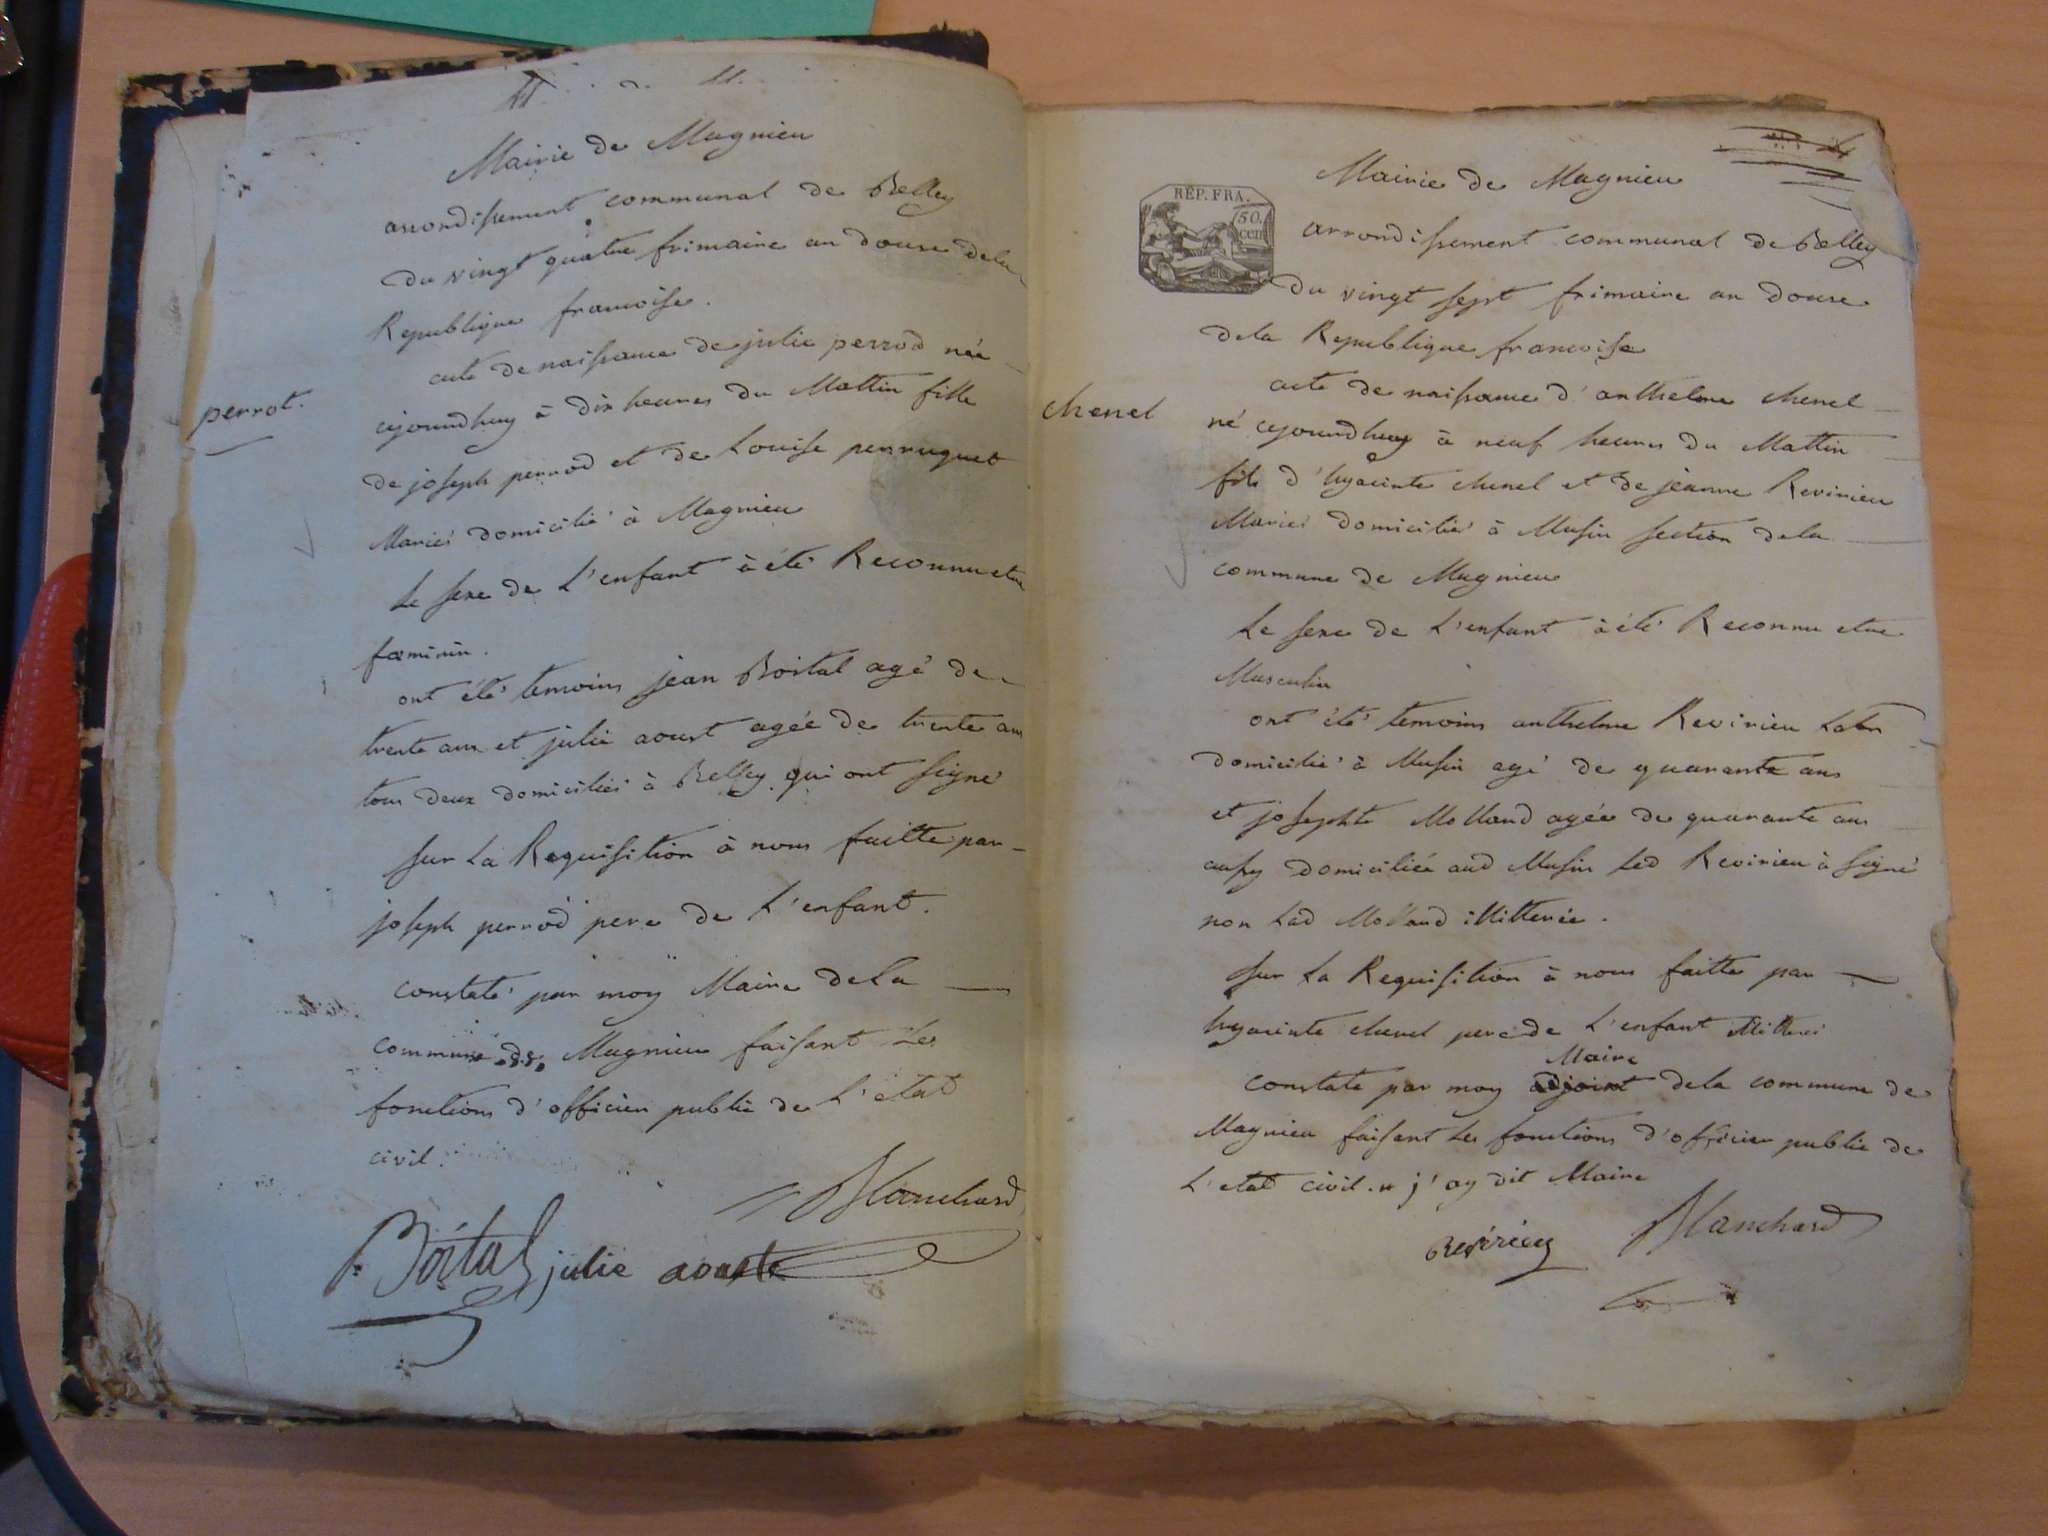 Mairie de Magnieu
arrondissement communal de Belley
du vingt quatre frimaire an douse dela
Republique francoise.
acte de naissance de julie perrod née
cejourdhuy à dix heures du Mattin fille
perrot.
de joseph perrod et de Louise perruquet
Mariés domicilié à Magnieu
Le sexe de L'enfant à été Reconnu etre
fœminin.
ont été temoins jean Boital agé de
trente ans et julie aoust agée de trente ans
tous deux domiciliés à Belley qui ont signé
sur La Requisition à nous faitte par
joseph perrod pere de L'enfant.
constaté par moy Maire dela
commune de Magnieu faisant Les
fonctions d'officier public de L'etat
civil.
Blanchard
Boital julie aouste
REP. FRA.
50. cen
Mairie de Magnieu
arrondissement communal de Belley
du vingt sept frimaire an douse
dela Republique francoise
acte de naissance d'anthelme chenel
chenel
né cejourdhuy à neuf heures du Mattin
fils d'hyacinte chenel et de jeanne Revirieu
Mariés domiciliés à Musin section dela
commune de Magnieu
Le sexe de L'enfant à été Reconnu etre
Masculin
ont été temoins anthelme Revirieu
domicilié à Musin agé de quarante ans
et josephte Molland agée de quarante ans
aussy domiciliée aud Musin Led Revirieu à signé
non Lad Molland illitterée.
sur La Requisition à nous faitte par
hyacinte chenel pere de L'enfant illitteré
Maire
constaté par moy adjoint dela commune de
Magnieu faisant Les fonctions d'officier public de
L'etat civil. j'ay dit Maire
Revirieu Blanchard